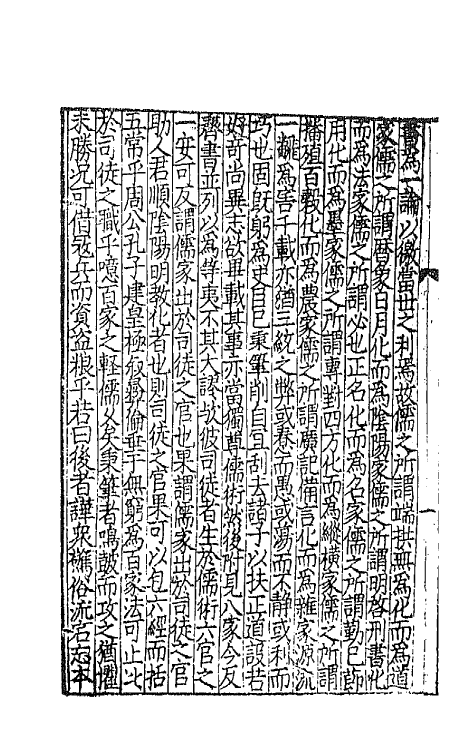 書爲一論以儆當世之利焉故儒之所謂端拱無爲化而爲道
家儒之所謂曆象日月化而爲陰陽家儒之所謂明啓刑書化
而爲法家儒之所謂必也正名化而爲名家儒之所謂勤已節
用化而爲墨家儒之所謂專對四方化而爲縱橫家儒之所謂
播殖百穀化而爲農家儒之所謂廣記備言化而爲雜家源流
一離爲害千載亦猶三統之弊或舂而愚或蕩而不靜或利而
巧也固旣躬爲史自己秉筆削自宜刮去諸子以扶正道設若
好奇尚異志欲再載其事亦當獨尊儒術然後附見八家今反
齊書並列以爲等夷不其大謬歟彼司徒者生於儒術六官之
一安可反謂儒家出於司徒之官也果謂儒家出於司徒之官
助人君順陰陽明教化者也則司徒之官果可以包六經而括
五常乎周公孔子建皇極叙彝倫垂于無窮爲百家法可止比
於司徒之職乎噫百家之輕儒乆矣秉筆者鳴鼓而攻之猶懼
未勝况可借宼兵而資盗粮乎若曰後者譁衆譙俗流宕忘本